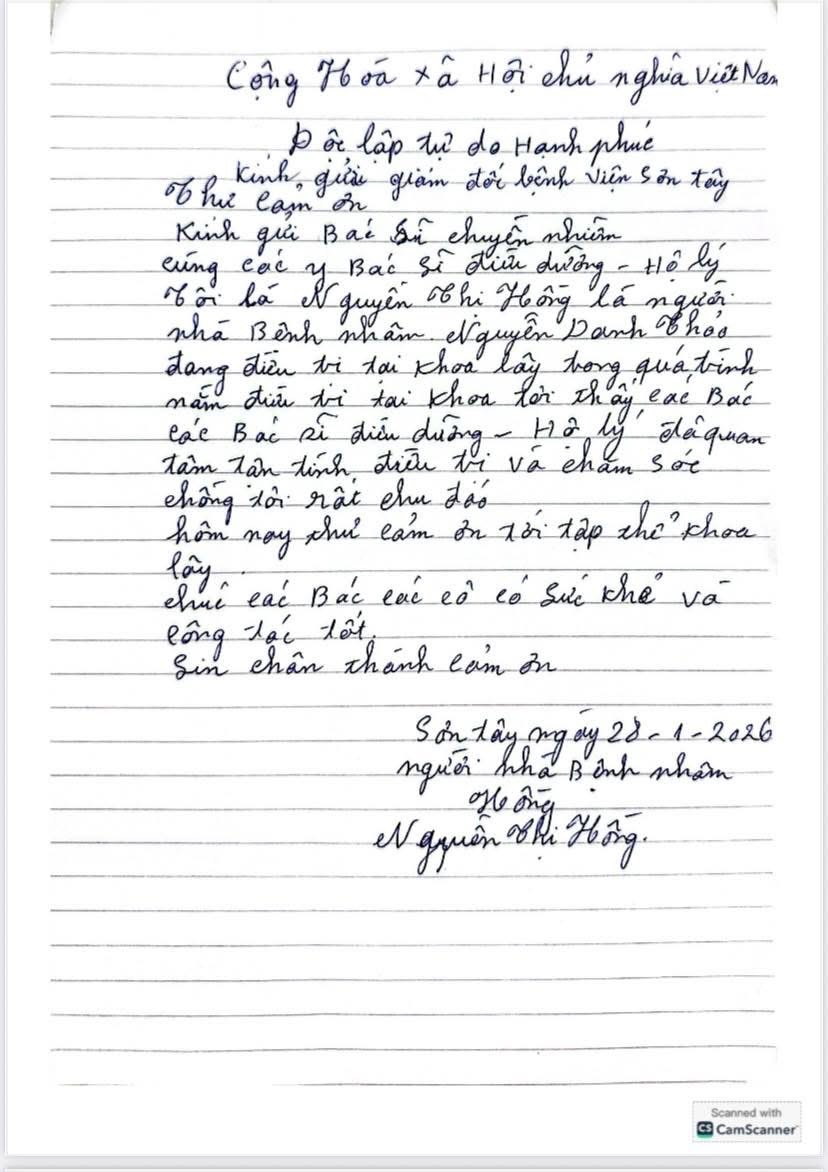 Cộng Hoá xã Hội chủ nghĩa Việt Nam
Độc lập tự do Hạnh phúc
Kính gửi giám đốc bệnh viện Sơn tây
Thư cảm ơn
Kính gửi Bác Sĩ chuyên nhiêm
cùng các y Bác Sĩ điều dưỡng - Hộ lý
Tôi là Nguyễn Thị Hồng là người
nhà Bệnh nhâm Nguyễn Danh Thảo
đang điều trị tại khoa lây trong quá trình
nằm điều trị tại khoa tôi thấy các Bác
các Bác sĩ điều dưỡng - Hộ lý đã quan
tâm tận tình điều trị và chăm sóc
chồng tôi rất chu đáo
hôm nay thư cảm ơn tới tập thể khoa
lây.
chúc các Bác các cô có sức khẻ và
công tác tốt.
Sin chân thành cảm ơn
Sơn tây ngày 28-1-2026
người nhà Bệnh nhâm
Hồng
Nguyễn Thị Hồng.
Scanned with
CS CamScanner